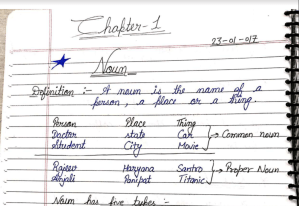 Chapter-1
23-01-017
Noun
Definition :- A noun is the name of a
person, a place or a thing.
Person Place Thing
Doctor state Car
Student City Movie → Common noun
Rajeev Haryana Santro
Anjali Panipat Titanic → Proper Noun
Noun has five types :-